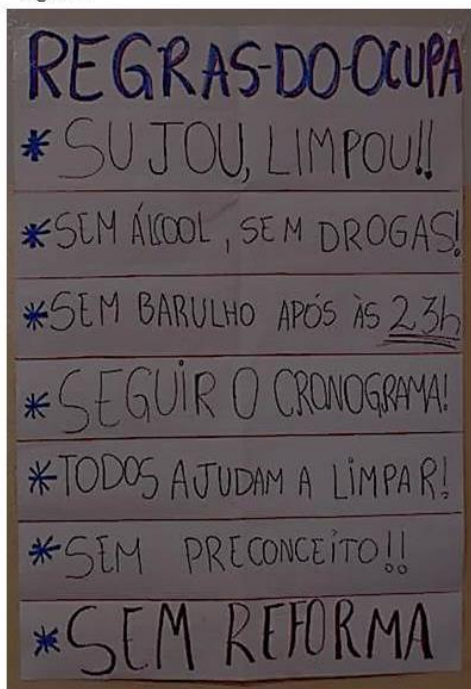 REGRAS-DO-OCUPA
* SUJOU, LIMPOU!!
* SEM ÁLCOOL, SEM DROGAS!
* SEM BARULHO APÓS ÀS 23h
* SEGUIR O CRONOGRAMA!
* TODOS AJUDAM A LIMPAR!
* SEM PRECONCEITO!!
* SEM REFORMA